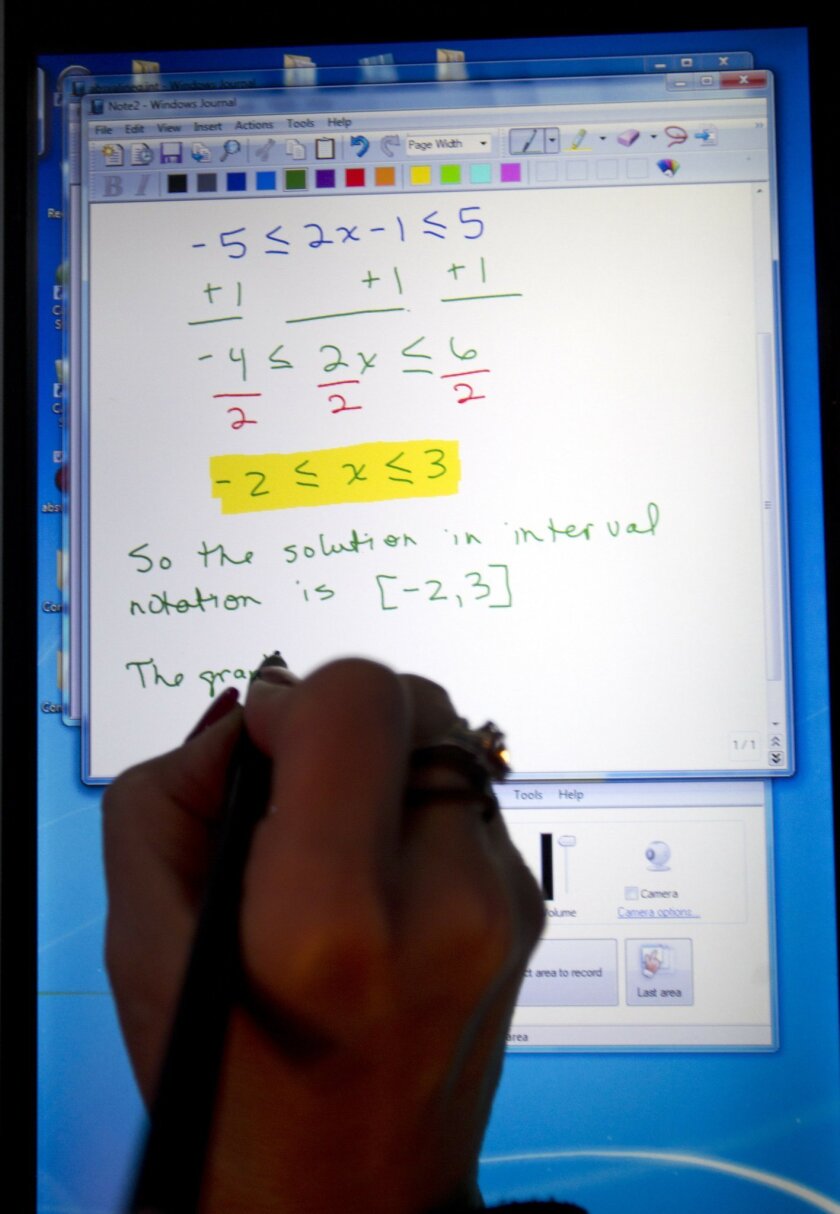 Note2 - Windows Journal
File Edit View Insert Actions Tools Help
Page Width
B I
Re
-5 ≤ 2x-1 ≤ 5
+1 +1 +1
-4 ≤ 2x ≤ 6
2 2 2
-2 ≤ x ≤ 3
So the solution in interval
notation is [-2,3]
The grap
1/1
Tools Help
olume
Camera
Camera options...
ct area to record
Last area
area